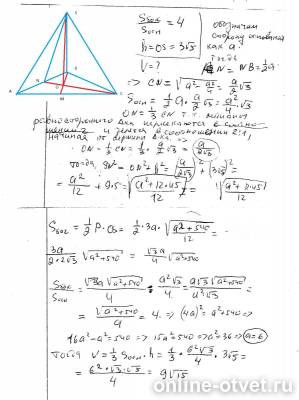 S бок / S осн = 4
h = OS = 3√5
V = ?
обозначим
сторону основания
как a.
тогда
AN = NB = 1/2 a
=> CN = √(a² - a²/4) = a/2 √3
S осн = 1/2 a · a/2 √3 = a²/4 √3
ON = 1/3 CN т.к. медианы
равностороннего Δка пересекаются в
и делятся в соотношении 2:1,
начиная от вершины =>
ON = 1/3 CN = 1/3 · a/2 √3 = a/(2√3)
тогда SN² = ON² + h² = (a/(2√3))² + (3√5)² =
= a²/12 + 9·5 = √((a² + 12·45)/12) =
S бок = 1/2 P · = 1/2 · 3a · √((a² + 540)/12) =
3a/(2·2√3) √(a² + 540) = √3a/4 √(a² + 540)
S бок / S осн = √3a √(a² + 540) / 4 : a²√3/4 = a√3 √(a² + 540) / a²√3 =
= √(a² + 540) / a = 4 => (4a)² = a² + 540 =>
16a² - a² = 540 => 15a² = 540 => a² = 36 => a = 6
тогда V = 1/3 S осн · h = 1/3 · 6²√3/4 · 3√5 =
= 6²·√3·√5 / 4 = 9√15
online-otvet.ru